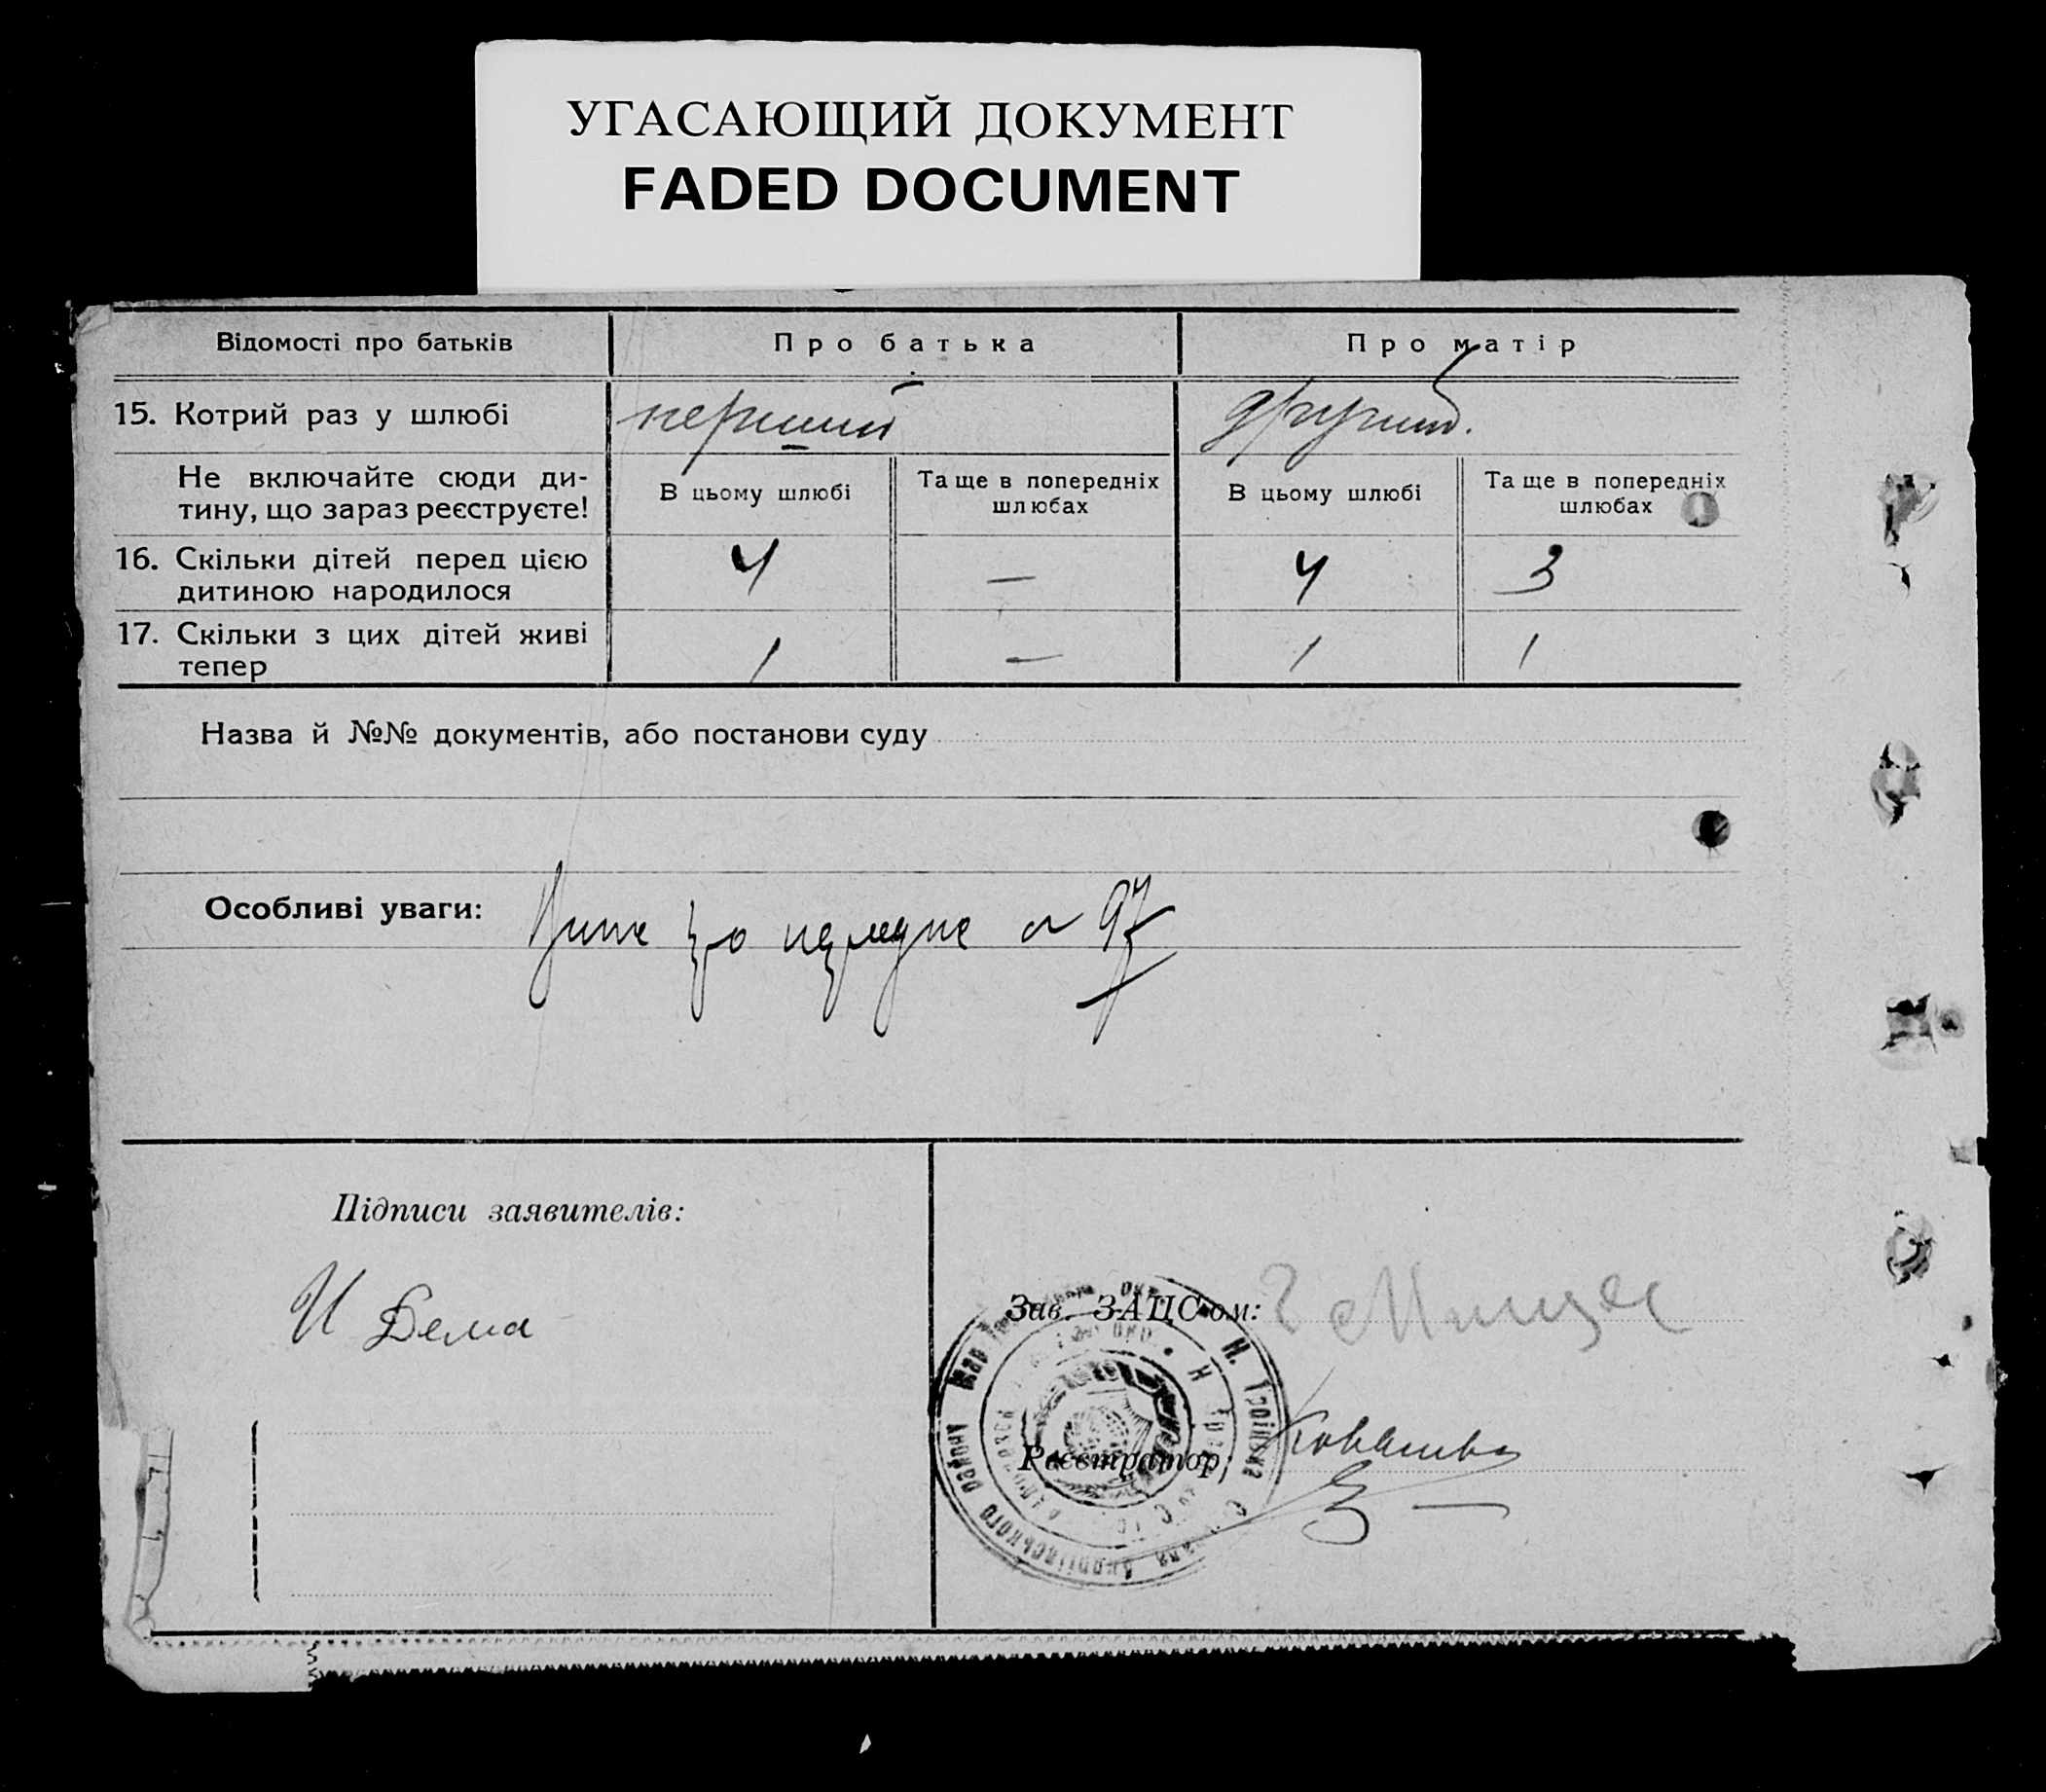 УГАСАЮЩИЙ ДОКУМЕНТ
FADED DOCUMENT
Відомості про батьків
Про батька
Про матір
15. Котрий раз у шлюбі
перший
другий.
Не включайте сюди ди-
тину, що зараз реєструєте!
В цьому шлюбі
Та ще в попередніх
шлюбах
В цьому шлюбі
Та ще в попередніх
шлюбах
16. Скільки дітей перед цією
дитиною народилося
4
—
4
3
17. Скільки з цих дітей живі
тепер
1
—
1
1
Назва й №№ документів, або постанови суду
Особливі уваги:
97
Підписи заявителів:
И Дема
Зав. ЗАЦС'ом:
Реєстратор:
Н. Троїцька